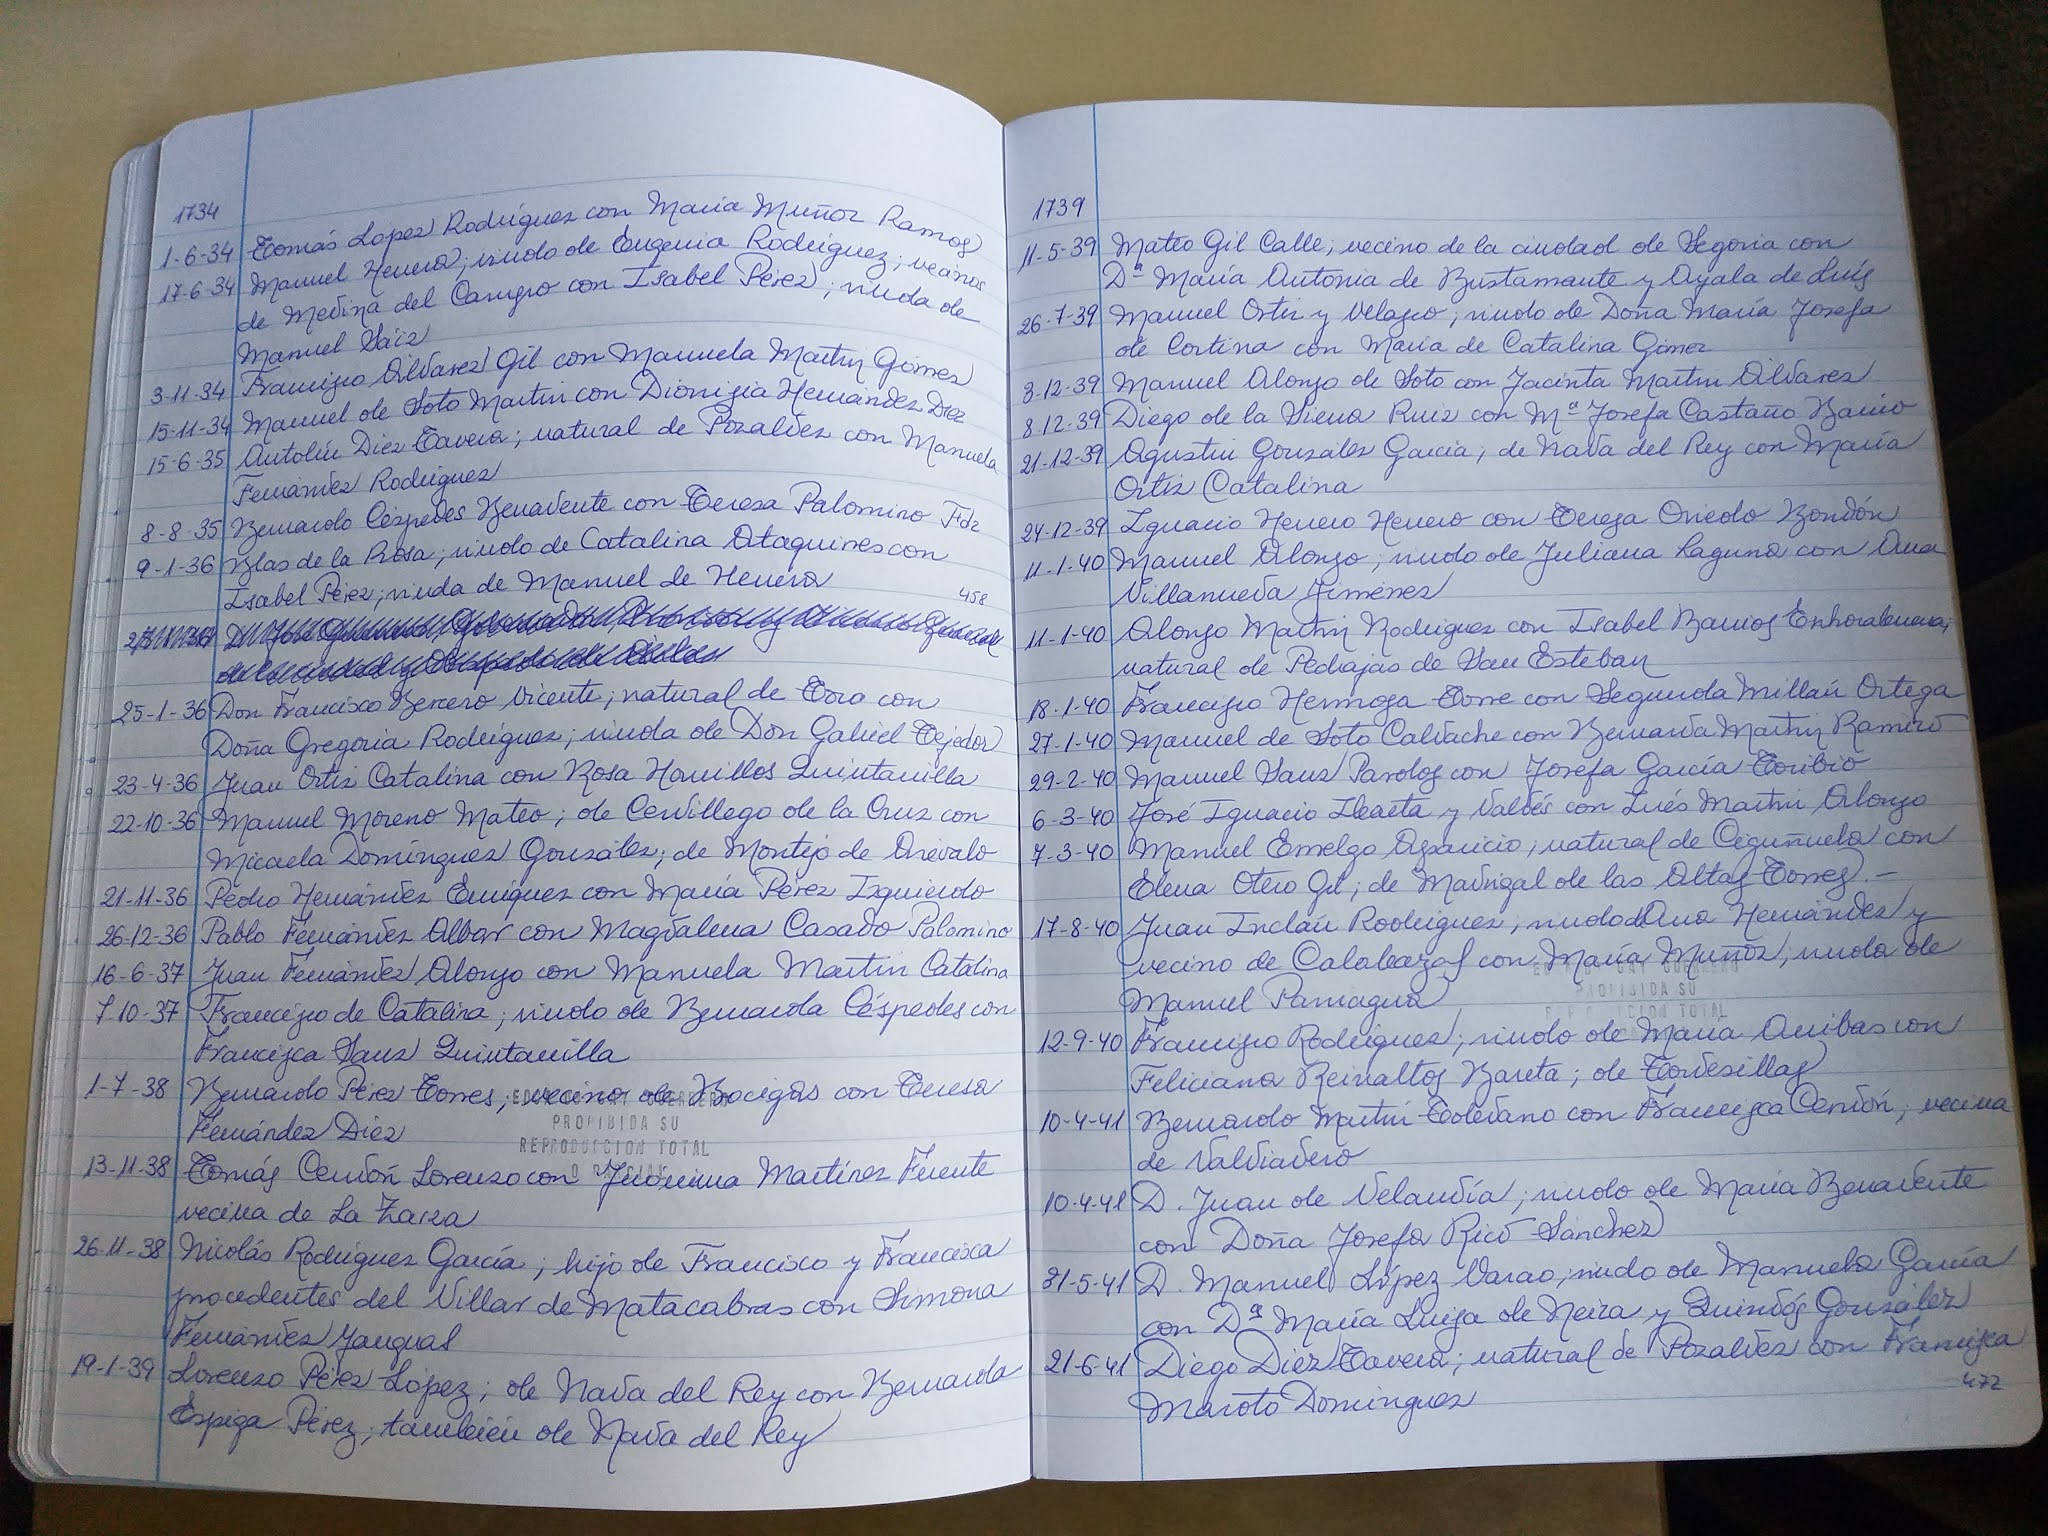 1734
1-6-34 Tomás López Rodríguez con María Muñoz Ramos
17-6-34 Manuel Herrera; viudo de Eugenia Rodríguez; vecinos
de Medina del Campo con Isabel Pérez; viuda de
Manuel Sáiz
3-11-34 Francisco Alvarez Gil con Manuela Martín Gómez
15-11-34 Manuel de Soto Martín con Dionisia Hernández Díez
15-6-35 Antolín Díez Tavera; natural de Pozaldez con Manuela
Fernández Rodríguez
8-8-35 Bernardo Céspedes Benavente con Teresa Palomino Fdz
9-1-36 Blas de la Rosa; viudo de Catalina Ataquines con
Isabel Pérez; viuda de Manuel de Herrera
458
25-1-36 Don Francisco Bercero Vicente; natural de Toro con
Doña Gregoria Rodríguez; viuda de Don Gabriel Tejedor
23-4-36 Juan Ortiz Catalina con Rosa Hornillos Quintanilla
22-10-36 Manuel Moreno Mateo; de Cervillego de la Cruz con
Micaela Domínguez González; de Montejo de Arévalo
21-11-36 Pedro Hernández Enríquez con María Pérez Izquierdo
26-12-36 Pablo Fernández Albar con Magdalena Casado Palomino
16-6-37 Juan Fernández Alonso con Manuela Martín Catalina
7-10-37 Francisco de Catalina; viudo de Bernarda Céspedes con
Francisca Sanz Quintanilla
1-7-38 Bernardo Pérez Torres; vecino de Bocigas con Teresa
Fernández Díez
PROHIBIDA SU
REPRODUCCION TOTAL
13-11-38 Tomás Cendón Lorenzo con Jerónima Martínez Fuente
vecina de La Zarza
26-11-38 Nicolás Rodríguez García; hijo de Francisco y Francisca
procedentes del Villar de Matacabras con Simona
Fernández Yanguas
19-1-39 Lorenzo Pérez López; de Nava del Rey con Bernarda
Espiga Pérez; también de Nava del Rey
1739
11-5-39 Mateo Gil Calle; vecino de la ciudad de Segovia con
Dª María Antonia de Bustamante y Ayala de Luis
26-7-39 Manuel Ortiz y Velasco; viudo de Doña María Josefa
de Cortina con María de Catalina Gómez
3-12-39 Manuel Alonso de Soto con Jacinta Martín Alvarez
8-12-39 Diego de la Sierra Ruiz con Mª Josefa Castaño Barrio
21-12-39 Agustín González García; de Nava del Rey con María
Ortiz Catalina
24-12-39 Ignacio Herrero Herrero con Teresa Oviedo Bondón
11-1-40 Manuel Alonso; viudo de Juliana Laguna con Ana
Villanueva Jiménez
11-1-40 Alonso Martín Rodríguez con Isabel Barrios Enhorabuena;
natural de Pedrajas de San Esteban
18-1-40 Francisco Hermosa Torre con Segunda Millán Ortega
27-1-40 Manuel de Soto Calvache con Bernarda Martín Ramiro
29-2-40 Manuel Sanz Parolos con Josefa García Toribio
6-3-40 José Ignacio Ibarta y Valdés con Inés Martín Alonso
7-3-40 Manuel Emelgo Aparicio; natural de Ciguñuela con
Elena Otero Gil; de Madrigal de las Altas Torres.-
17-8-40 Juan Inclán Rodríguez, viudo de Ana Hernández y
vecino de Calabazas con María Muñoz, viuda de
Manuel Paniagua
PROHIBIDA SU
REPRODUCCION TOTAL
12-9-40 Francisco Rodríguez; viudo de María Arribas con
Feliciana Reinaltos Bareta; de Tordesillas
10-4-41 Bernardo Martín Toledano con Francisca Cendón; vecina
de Valdiadero
10-4-41 D. Juan de Velandía; viudo de María Benavente
con Doña Josefa Rico Sánchez
31-5-41 D. Manuel López Varao; viudo de Manuela García
con Dª María Luisa de Neira y Quindós González
21-6-41 Diego Díez Tavera; natural de Pozaldez con Francisca
Maroto Domínguez
472